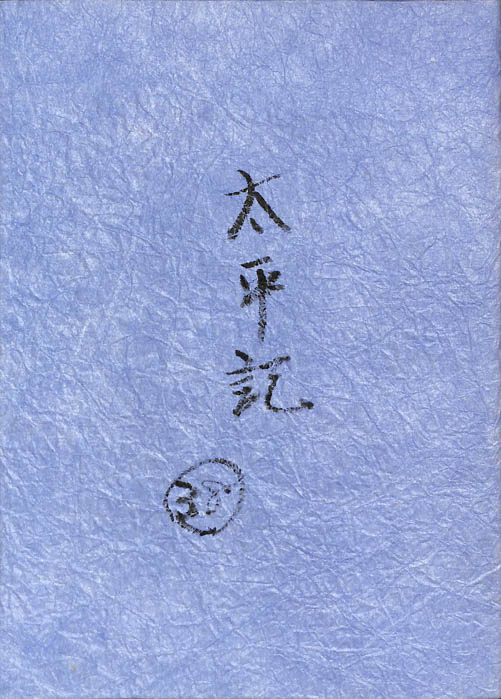 太平記
38